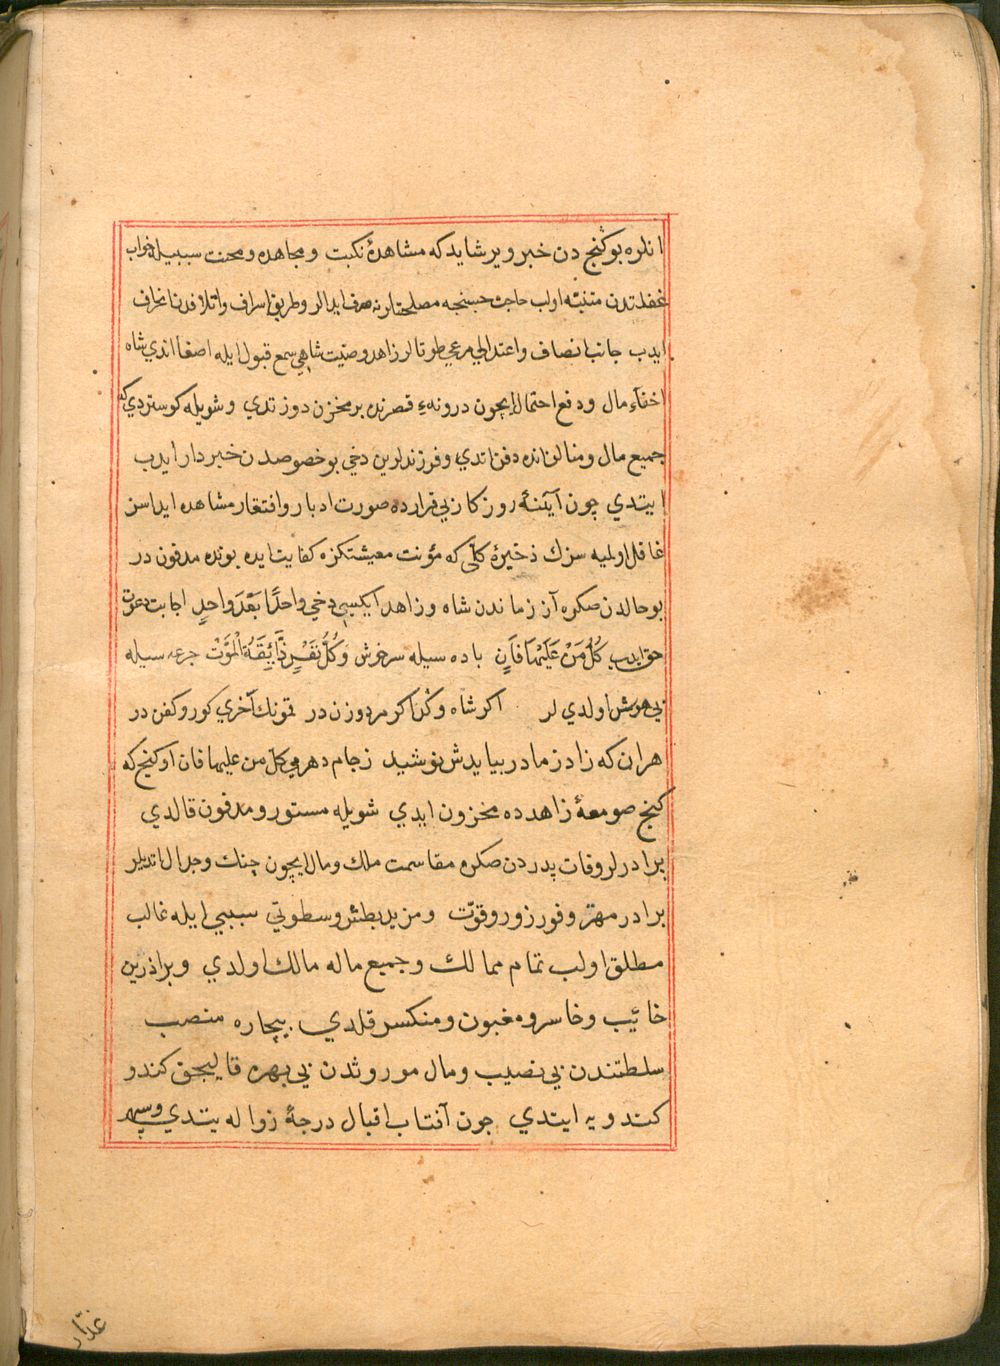 انلره بو كنجدن خبر وير شايد كه مشاهدۀ نكبت و مجاهده و محنت سببيله خواب
غفلتدن متنبّه اولب حاجت حسبنجه مصلحتلرنه صرف ايدالر و طريق اسراف و اتلافدن انحراف
ايدب جانب انصاف و اعتدالى مرعي طوتالر زاهد وصيّت شاهي سمع قبول ايله اصغا اندي شاه
اخفاء مال و دفع احتمال ايچون درونهء قصرنده بر مخزن دوزتدي و شويله كوستردي كه
جميع مال و منالن انده دفن اتدي و فرزندلرين دخي بو خصوصدن خبردار ايدب
ايتدي چون آيئنۀ روزكار بي قرارده صورت ادبار و افتقار مشاهده ايداسز
غافل اولميه سزك ذخيرۀ كلّى كه مؤنت معيشتكزه كفايت ايده بونده مدفون در
بو حالدن صكره آز زماندن شاه و زاهد ايكسي دخي واحدًا بَعْدَ واحدٍ اجابت دعوت
حق ايدب كُلُّ مَنْ عَلَيْهَا فَانٍ باده سيله سرخوش و كُلُّ نَفْسٍ ذَآئِقَةُ الْمَوْت جرعه سيله
بي هوش اولدي لر اكر شاه و كدا كر مرد و زن در تمونك آخري كور و كفن در
هر ان كه زاد ز مادر ببايدش نوشيد ز جام دهر مي كل من عليها فان او كنج كه
كنج صومعۀ زاهده مخزون ايدي شويله مستور و مدفون قالدي
برادرلر وفات پدردن صكره مقاسمت ملك و مال ايچون چنك و جدال اتديلر
برادر مهتر وفور زور و قوّت و مزيد بطش و سطوتي سببي ايله غالب
مطلق اولب تمام ممالك و جميع ماله مالك اولدي و براذرين
خائيب و خاسر و مغبون و منكسر قلدي بيچاره منصب
سلطنتدن بي نصيب و مال موروثدن بي بهره قاليجق كندو
كندويه ايتدي چون آفتاب اقبال درجۀ زواله يتدي و سپهر
غدّار